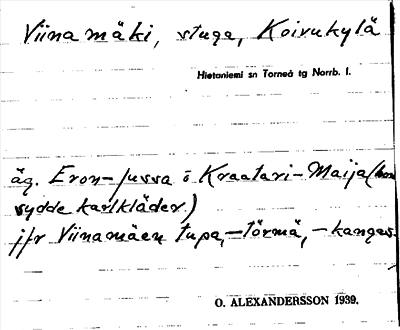 Viinamäki, stuga, Koivukylä
Hietaniemi sn Torneå tg Norrb. l.
äg. Eron-Jussa o Kraatari-Maija (hon
sydde karlkläder.)
jfr Viinamäen tupa, -törmä, -kangas.
O. ALEXANDERSSON 1939.